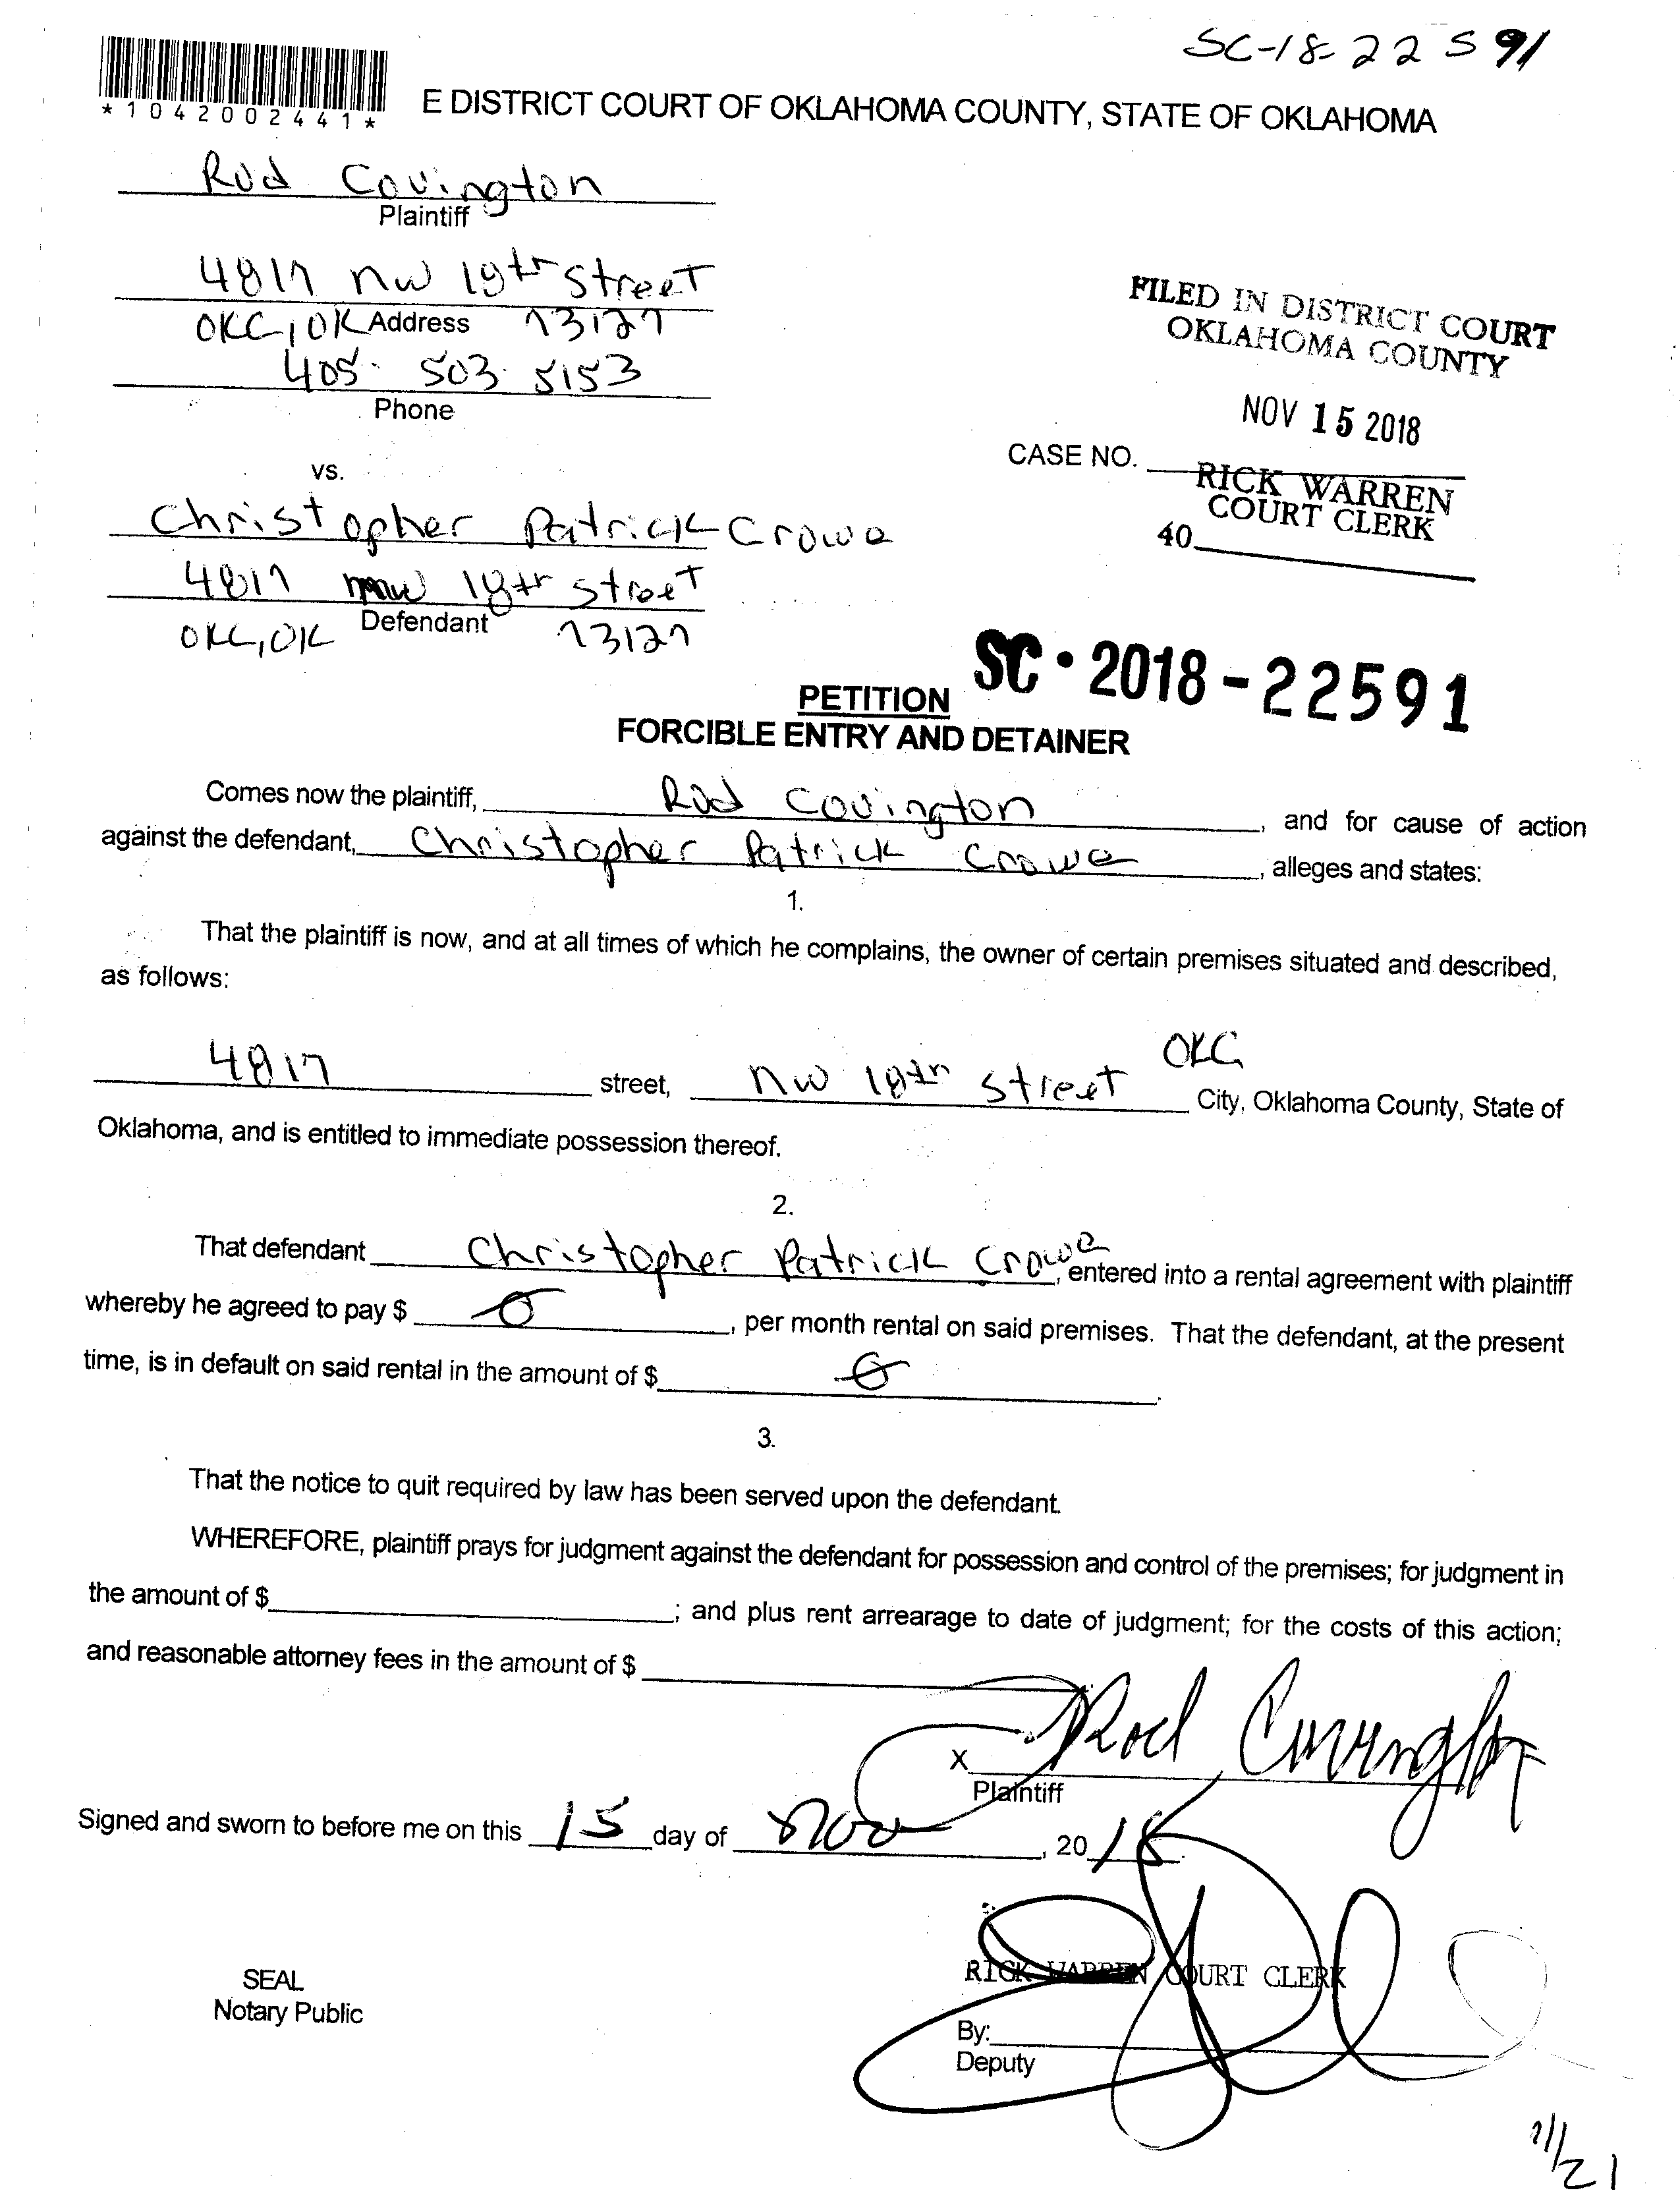 SC-18-22591
*1042002441*
E DISTRICT COURT OF OKLAHOMA COUNTY, STATE OF OKLAHOMA
Rod Covington
Plaintiff
4817 NW 18th Street
OKC, OK Address 73127
405-503-5153
Phone
FILED IN DISTRICT COURT
OKLAHOMA COUNTY
NOV 15 2018
CASE NO.
RICK WARREN
COURT CLERK
40
vs.
Christopher Patrick Crowe
4817 NW 18th Street
Defendant
OKC, OK 73127
SC-2018-22591
PETITION
FORCIBLE ENTRY AND DETAINER
Comes now the plaintiff, Rod Covington, and for cause of action
against the defendant, Christopher Patrick Crowe, alleges and states:
1.
That the plaintiff is now, and at all times of which he complains, the owner of certain premises situated and described,
as follows:
4817 street, NW 18th Street OKC City, Oklahoma County, State of
Oklahoma, and is entitled to immediate possession thereof.
2.
That defendant Christopher Patrick Crowe, entered into a rental agreement with plaintiff
whereby he agreed to pay $ 0, per month rental on said premises. That the defendant, at the present
time, is in default on said rental in the amount of $ 0.
3.
That the notice to quit required by law has been served upon the defendant.
WHEREFORE, plaintiff prays for judgment against the defendant for possession and control of the premises; for judgment in
the amount of $; and plus rent arrearage to date of judgment; for the costs of this action;
and reasonable attorney fees in the amount of $
X Rod Covington
Plaintiff
Signed and sworn to before me on this 15 day of Nov, 2018.
RICK WARREN COURT CLERK
SEAL
Notary Public
By:
Deputy
11/21